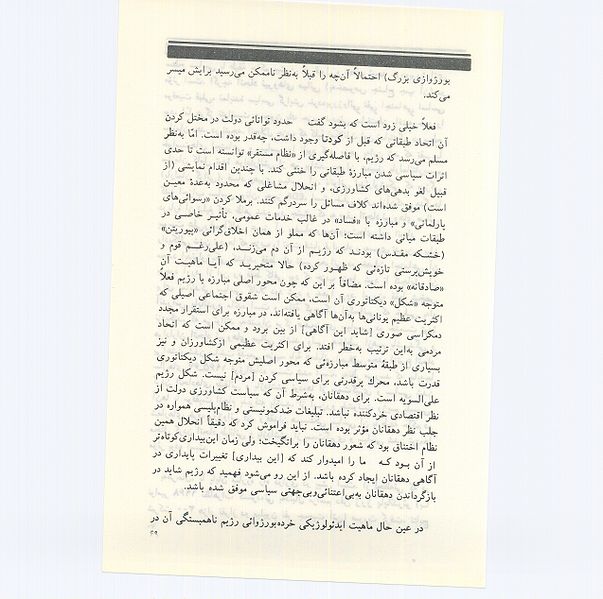 بورژوازی بزرگ) احتمالاً آن‌چه را قبلاً به‌نظر ناممکن می‌رسید برایش میسر
می‌کند.
فعلاً خیلی زود است که بشود گفت حدود توانائی دولت در مختل کردن
آن اتحاد طبقاتی که قبل از کودتا وجود داشت، چه‌قدر بوده است. امّا به‌نظر
مسلم می‌رسد که رژیم، با فاصله‌گیری از «نظام مستقر» توانسته است تا حدی
اثرات سیاسی شدن مبارزهٔ طبقاتی را خنثی کند. با چندین اقدام نمایشی (از
قبیل لغو بدهی‌های کشاورزی، و انحلال مشاغلی که محدود به‌عدهٔ معین
است) موفق شده‌اند کلاف مسائل را سردرگم کنند. برملا کردن «رسوائی‌های
پارلمانی» و مبارزه با «فساد» در غالب خدمات عمومی، تأثیر خاصی در
طبقات میانی داشته است؛ آن‌ها که مملو از همان اخلاق‌گرائی «پیوریتن»
(خشکه مقدس) بودند که رژیم از آن دم می‌زند، (علی‌رغم قوم و
خویش‌پرستی تازه‌ئی که ظهور کرده) حالا متحیرند که آیا ماهیت آن
«صادقانه» بوده است. مضافاً بر این که چون محور اصلی مبارزه با رژیم فعلاً
متوجه «شکل» دیکتاتوری آن است، ممکن است شقوق اجتماعی اصیلی که
اکثریت عظیم یونانی‌ها به‌آن‌ها آگاهی یافته‌اند، در مبارزه برای استقرار مجدد
دمکراسی صوری [شاید این آگاهی] از بین برود و ممکن است که اتحاد
مردمی به‌این ترتیب به‌خطر افتد. برای اکثریت عظیمی ازکشاورزان و نیز
بسیاری از طبقهٔ متوسط مبارزه‌ئی که محور اصلیش متوجه شکل دیکتاتوری
قدرت باشد، محرك پرقدرتی برای سیاسی کردن [مردم] نیست. شکل رژیم
علی‌السویه است. برای دهقانان، به‌شرط آن که سیاست کشاورزی دولت از
نظر اقتصادی خردکننده نباشد. تبلیغات ضدکمونیستی و نظام‌پلیسی همواره در
جلب نظر دهقانان مؤثر بوده است. نباید فراموش کرد که دقیقاً انحلال همین
نظام اختناق بود که شعور دهقانان را برانگیخت؛ ولی زمان این‌بیداری‌کوتاه‌تر
از آن بود که ما را امیدوار کند که [این بیداری] تغییرات پایداری در
آگاهی دهقانان ایجاد کرده باشد. از این رو می‌شود فهمید که رژیم شاید در
بازگرداندن دهقانان به‌بی‌اعتنائی‌وبی‌جهتی سیاسی موفق شده باشد.
در عین حال ماهیت ایدئولوژیکی خرده‌بورژوائی رژیم ناهمبستگی آن در